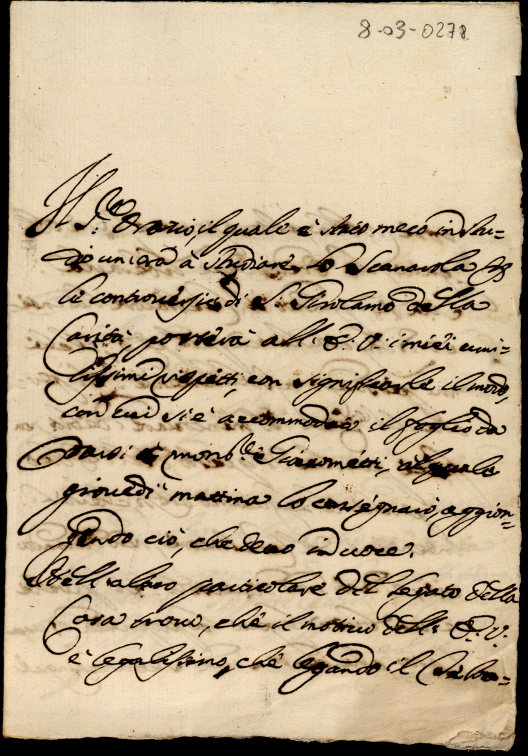 8-03-0278
Il S.r Orazio, il quale è stato meco in stu-
dio unita à studiare lo Scanarola
le controversie di S. Girolamo della
Carità, porterà all' E. V. i miei umi-
lissimi rispetti, con significarle il modo,
con cui si è accommodato il foglio da
darsi à Mons.re Giacometti, al quale
giovedì mattina lo consegnarò, aggion-
gendo ciò, che devo in voce.
Nell' altro particolare del legato della
Casa trovo, che il motivo dell' E. V.
è legalissimo, che legando il